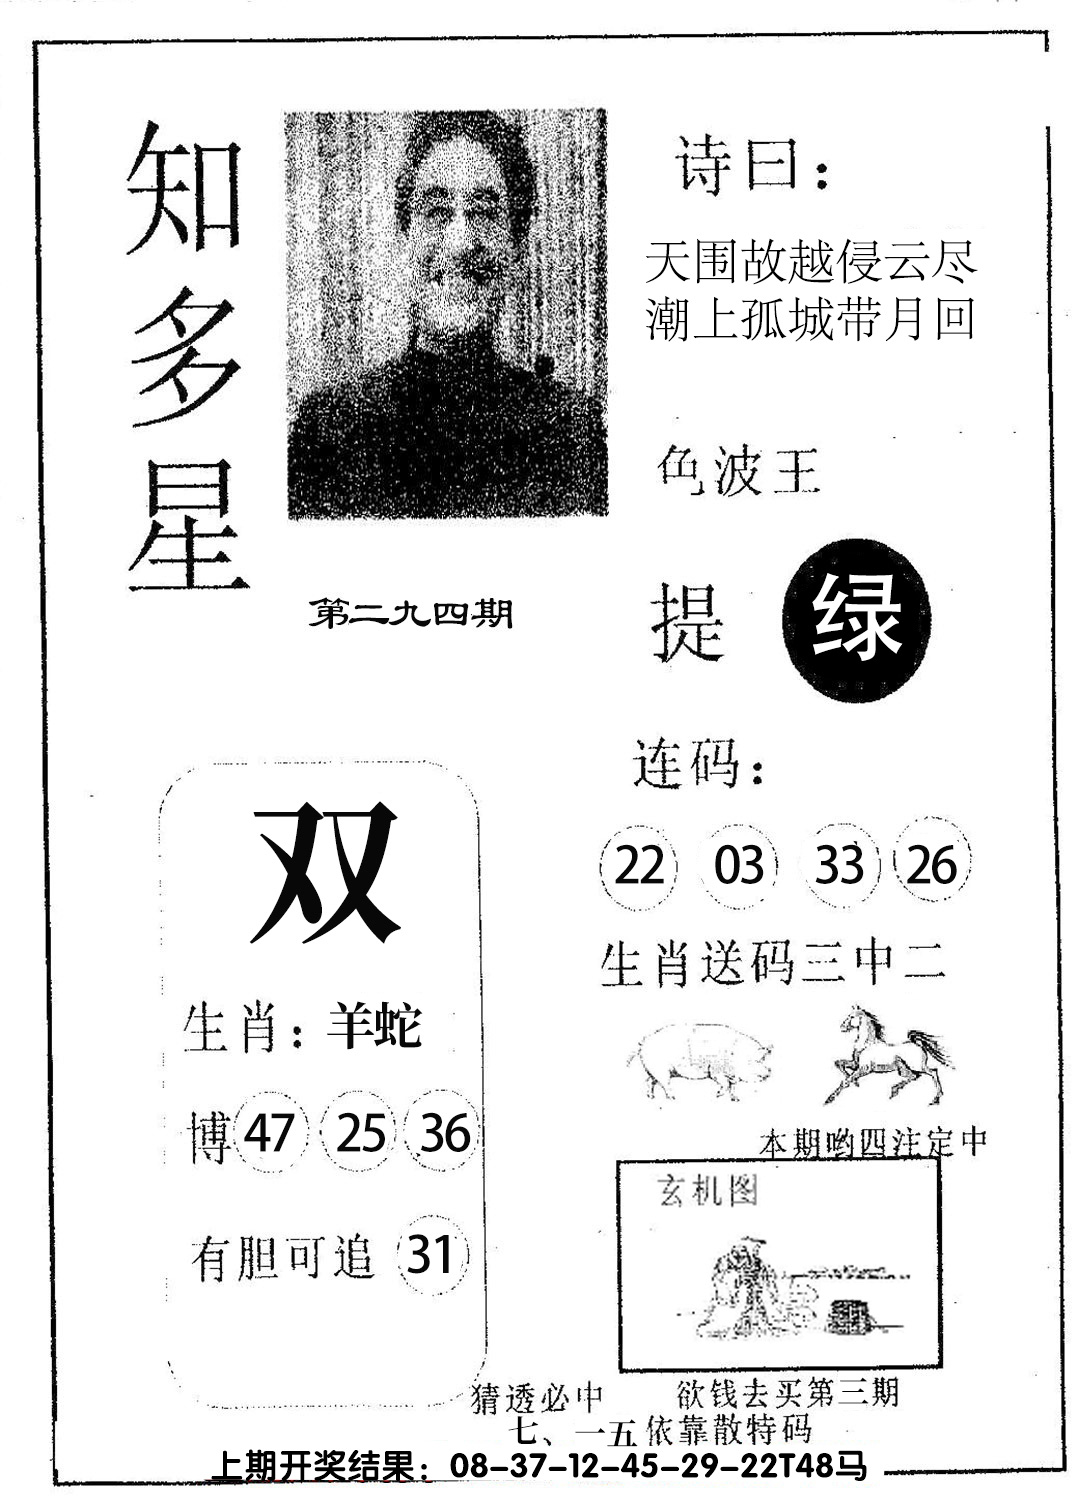 知多星
诗曰：
天围故越侵云尽
潮上孤城带月回
色波王
提 绿
第二九四期
连码：
22 03 33 26
生肖送码三中二
双
生肖：羊蛇
博 47 25 36
有胆可追 31
本期哟四注定中
玄机图
猜透必中 欲钱去买第三期
七、一五依靠散特码
上期开奖结果：08-37-12-45-29-22T48马